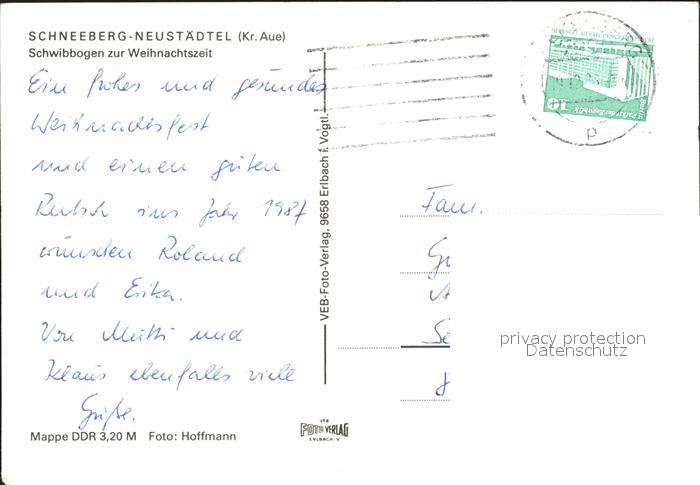 SCHNEEBERG-NEUSTÄDTEL (Kr. Aue)
Schwibbogen zur Weihnachtszeit
Ein frohes und gesundes
Weihnachtsfest
und einen guten
Rutsch ins Jahr 1987
wünschen Roland
und Erika.
Von Mutti und
Klaus ebenfalls viele
Grüße.
Mappe DDR 3,20 M Foto: Hoffmann
VEB-Foto-Verlag, 9658 Erlbach i. Vogtl.
VEB
FOTO VERLAG
ERLBACH V.
10
P
Fam.
privacy protection
Datenschutz